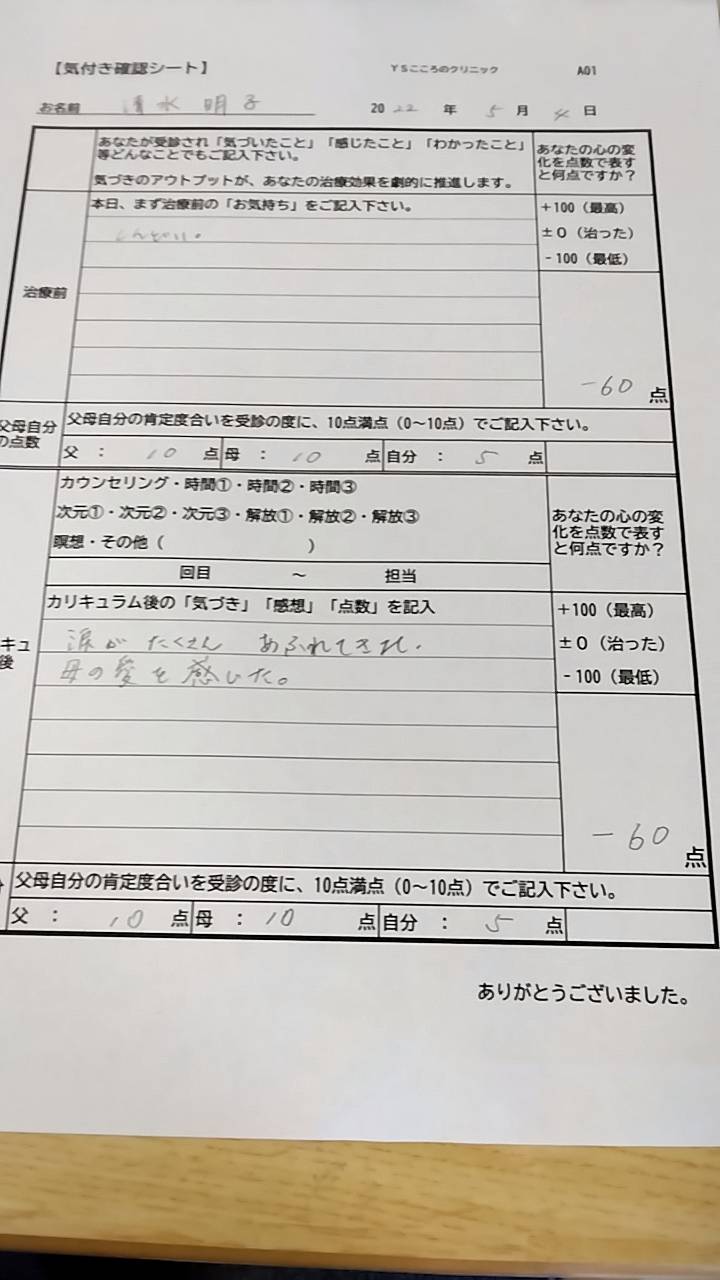 【気付き確認シート】 YSこころのクリニック A01
お名前 清水 明子 2022年 5月 4日
あなたが受診され「気づいたこと」「感じたこと」「わかったこと」
等どんなことでもご記入下さい。
気づきのアウトプットが、あなたの治療効果を劇的に推進します。
あなたの心の変
化を点数で表す
と何点ですか？
治療前
本日、まず治療前の「お気持ち」をご記入下さい。
しんどい。
+100（最高）
±0（治った）
-100（最低）
-60 点
父母自分
の点数
父母自分の肯定度合いを受診の度に、10点満点（0～10点）でご記入下さい。
父 ： 10 点 母 ： 10 点 自分 ： 5 点
カウンセリング・時間①・時間②・時間③
次元①・次元②・次元③・解放①・解放②・解放③
瞑想・その他（ ）
回目 ～ 担当
あなたの心の変
化を点数で表す
と何点ですか？
キュ
後
カリキュラム後の「気づき」「感想」「点数」を記入
涙が たくさん あふれてきた.
母の愛を感じた。
+100（最高）
±0（治った）
-100（最低）
-60 点
父母自分の肯定度合いを受診の度に、10点満点（0～10点）でご記入下さい。
父 ： 10 点 母 ： 10 点 自分 ： 5 点
ありがとうございました。